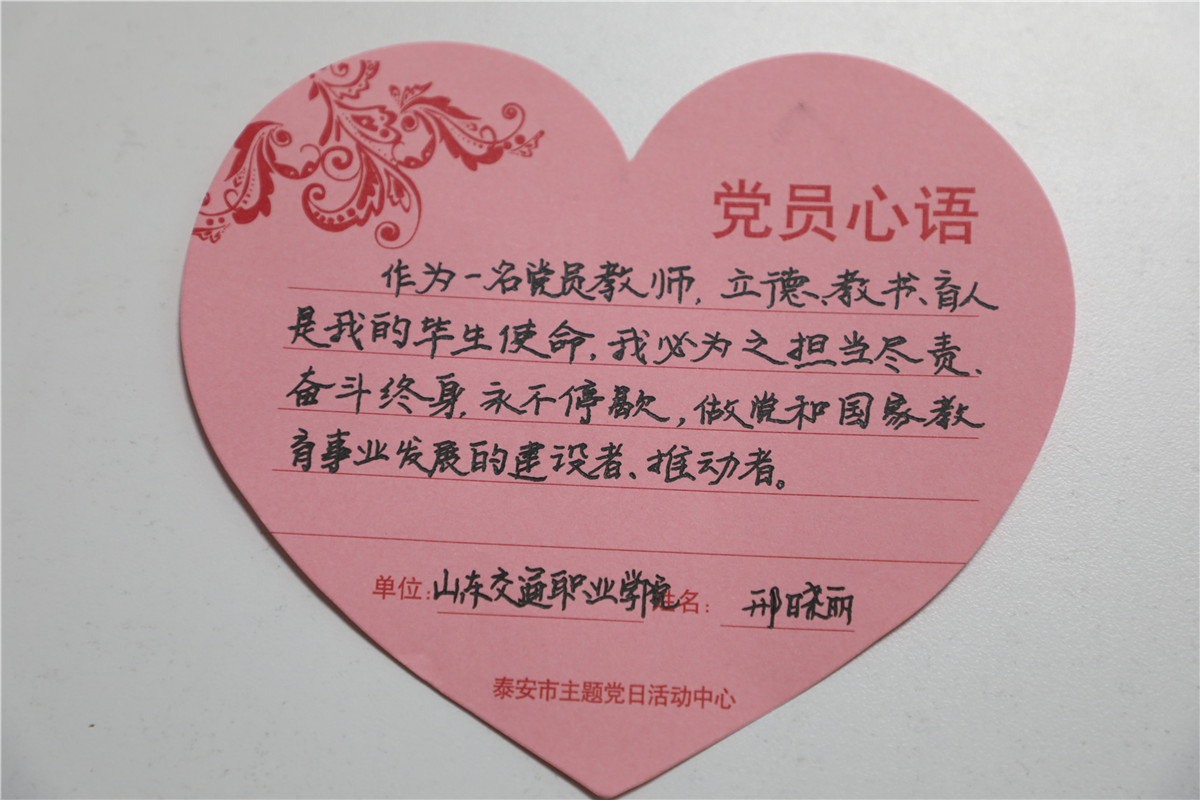 党员心语
作为一名党员教师,立德、教书、育人
是我的毕生使命,我必为之担当尽责、
奋斗终身,永不停歇,做党和国家教
育事业发展的建设者、推动者。
单位:山东交通职业学院 姓名: 邢晓丽
泰安市主题党日活动中心